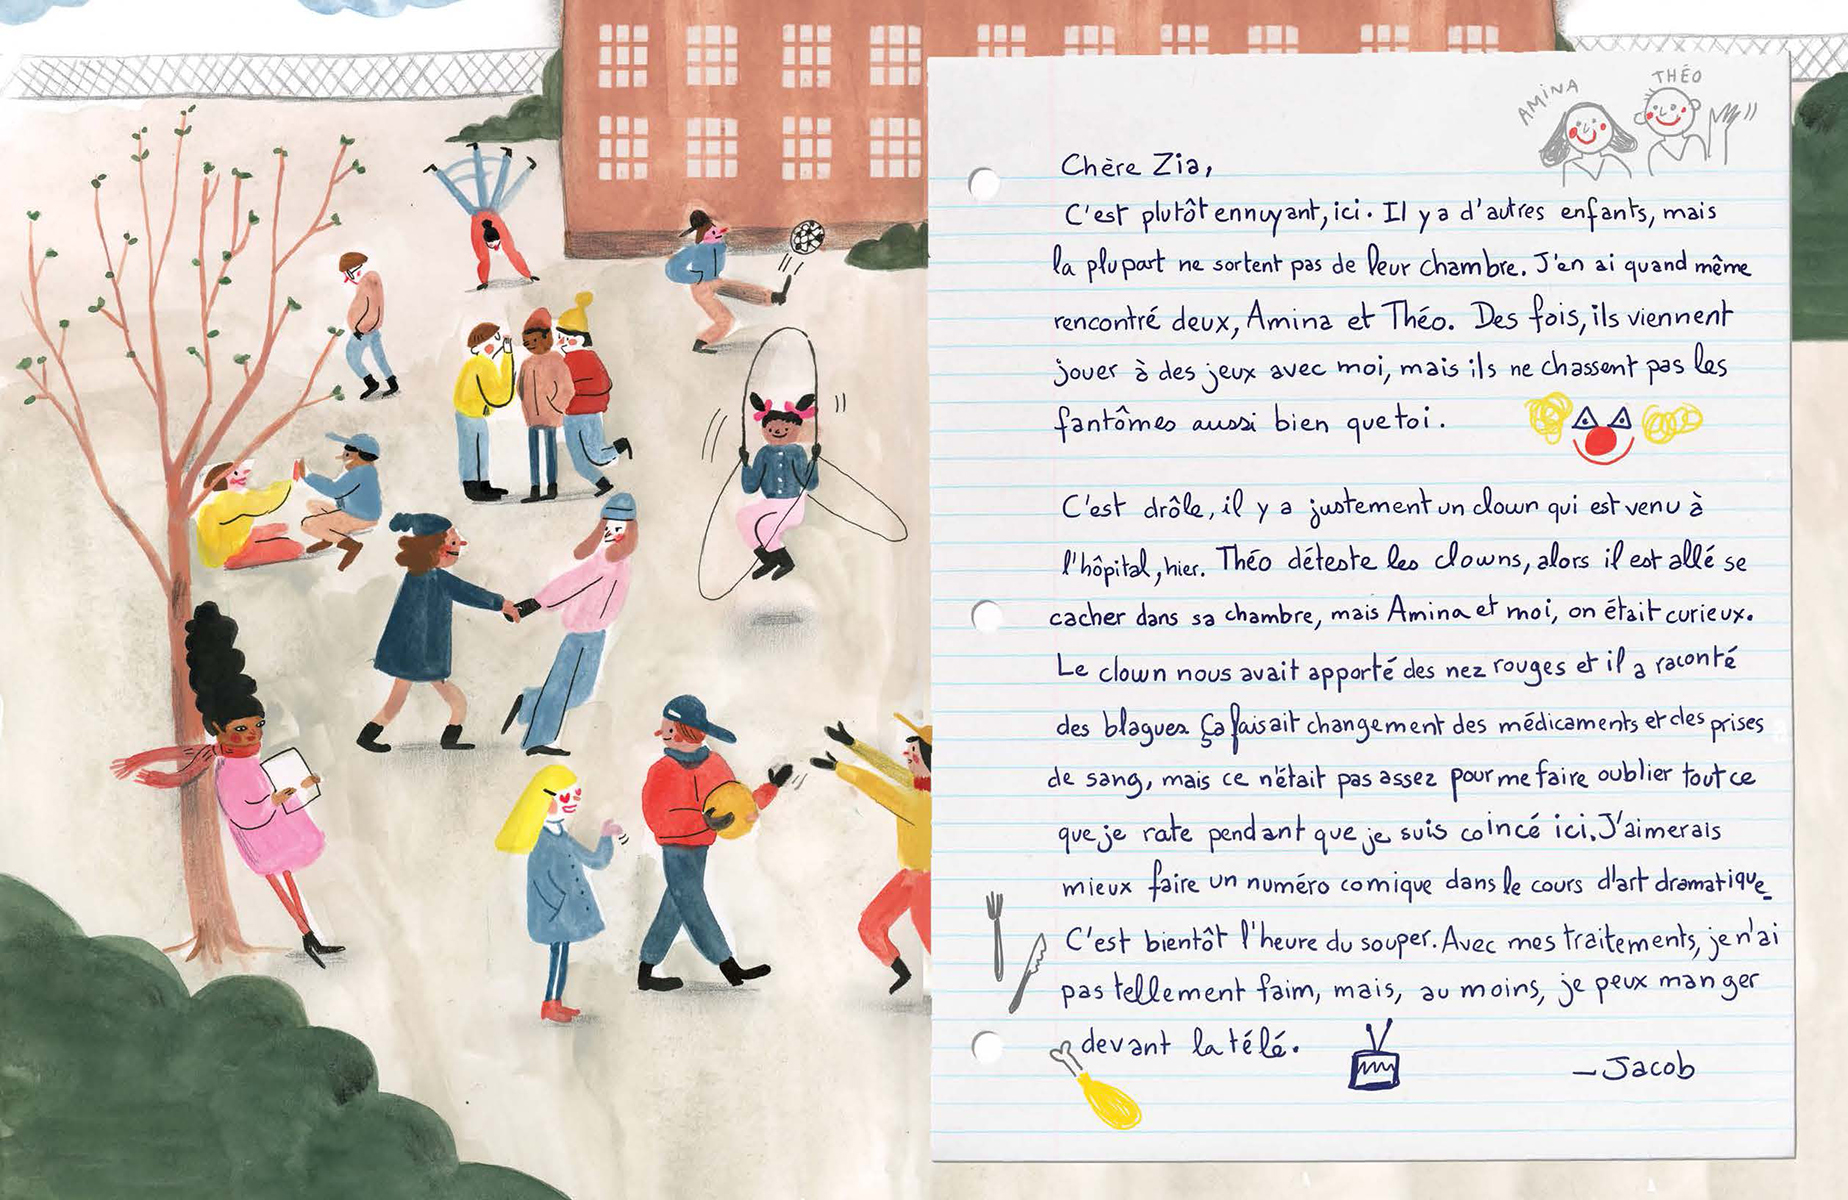 AMINA
THÉO
Chère Zia,
C'est plutôt ennuyant, ici. Il y a d'autres enfants, mais
la plupart ne sortent pas de leur chambre. J'en ai quand même
rencontré deux, Amina et Théo. Des fois, ils viennent
jouer à des jeux avec moi, mais ils ne chassent pas les
fantômes aussi bien que toi.
C'est drôle, il y a justement un clown qui est venu à
l'hôpital, hier. Théo déteste les clowns, alors il est allé se
cacher dans sa chambre, mais Amina et moi, on était curieux.
Le clown nous avait apporté des nez rouges et il a raconté
des blagues. Ça faisait changement des médicaments et des prises
de sang, mais ce n'était pas assez pour me faire oublier tout ce
que je rate pendant que je suis coincé ici. J'aimerais
mieux faire un numéro comique dans le cours d'art dramatique.
C'est bientôt l'heure du souper. Avec mes traitements, je n'ai
pas tellement faim, mais, au moins, je peux manger
devant la télé.
—Jacob